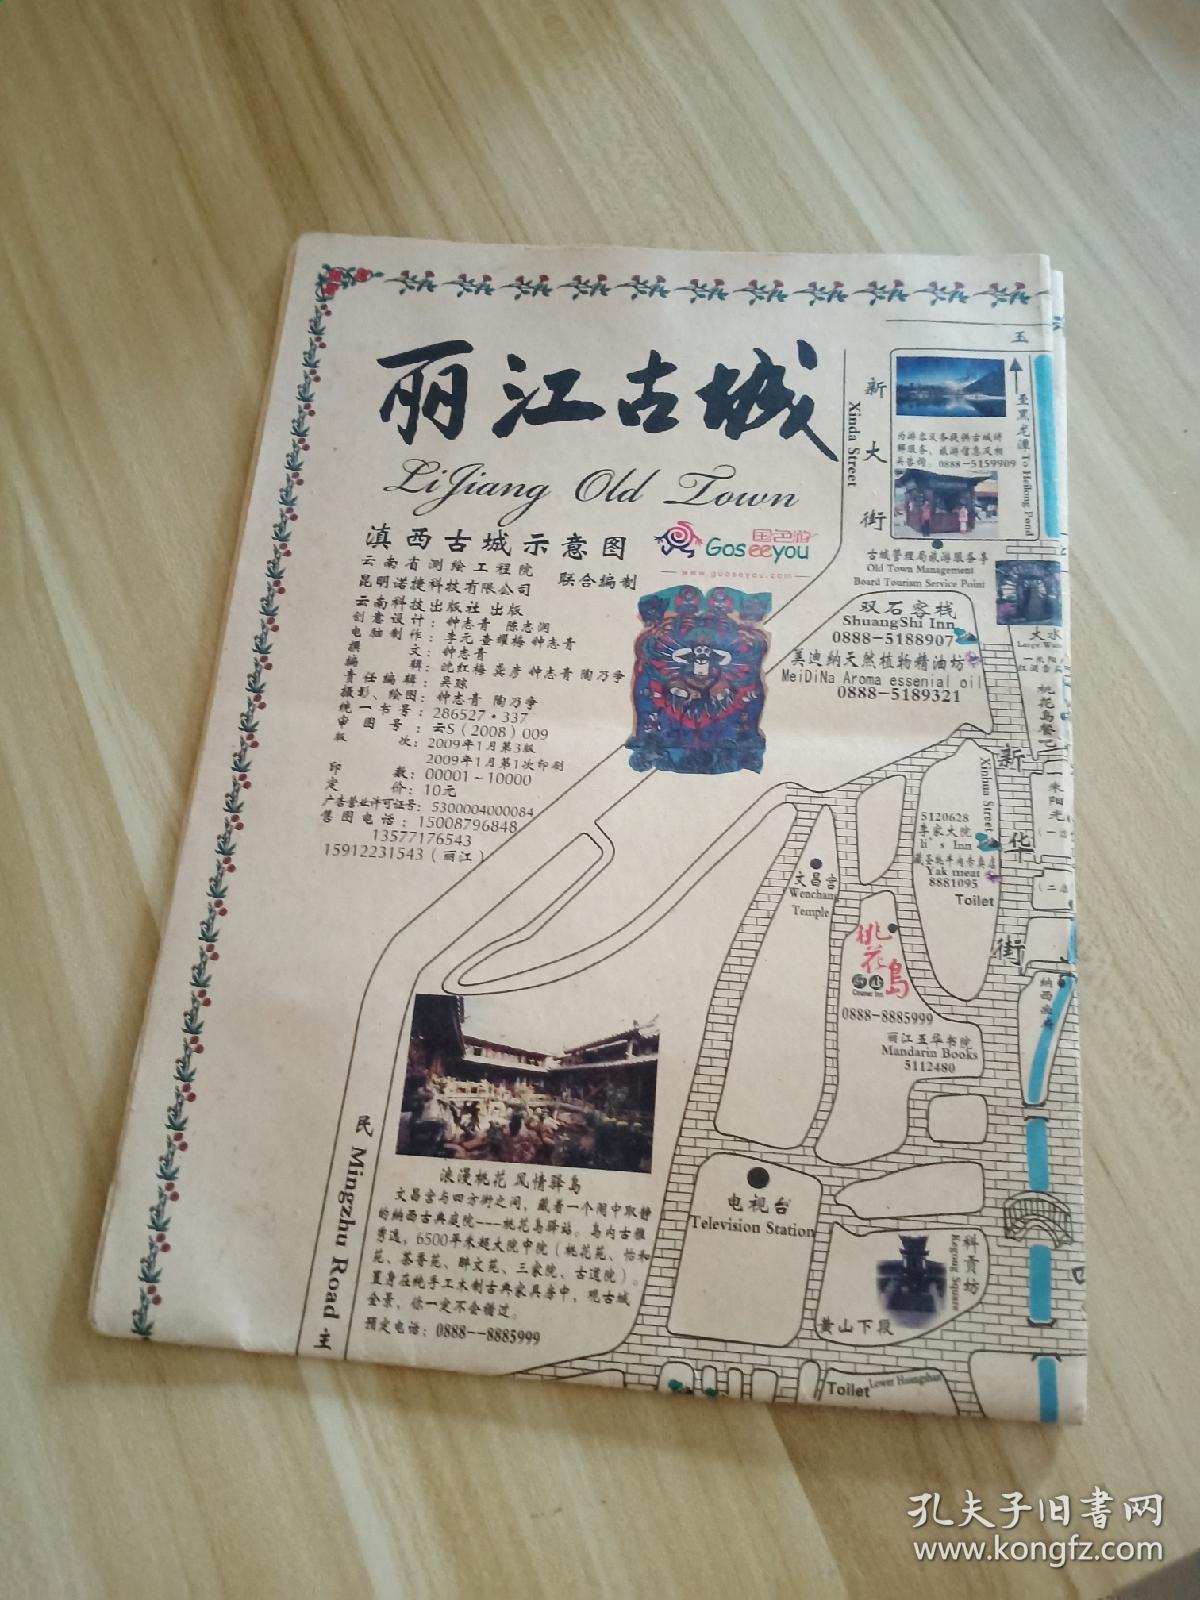 丽江古城
LiJiang Old Town
滇西古城示意图
国色游
Goseeyou
www.guoseyou.com
云南省测绘工程院
昆明诺捷科技有限公司
联合编制
云南科技出版社 出版
创意设计：钟志青 陈志润
电脑制作：李元 查耀梅 钟志青
撰文：钟志青
编辑：沈红梅 龚彦 钟志青 陶乃争
责任编辑：吴琼
摄影、绘图：钟志青 陶乃争
统一书号：286527·337
审图号：云S（2008）009
版次：2009年1月第3版
2009年1月第1次印刷
印数：00001-10000
定价：10元
广告营业许可证号：5300004000084
售图电话：15008796848
13577176543
15912231543（丽江）
新大街
Xinda Street
玉
至黑龙潭 To Heilong Pond
为游客义务提供古城讲
解服务、旅游信息及相
关咨询。0888-5159909
古城管理局旅游服务亭
Old Town Management
Board Tourism Service Point
双石客栈
ShuangShi Inn
0888-5188907
美迪纳天然植物精油坊
MeiDiNa Aroma essenial oil
0888-5189321
大水
桃花岛餐吧
一米阳光
新华街
Xinhua Street
5120628
李家大院
li's Inn
藏圣牦牛肉专卖店
Yak meat
8881095
Toilet
文昌宫
Wenchang
Temple
桃花島
0888-8885999
丽江五华书院
Mandarin Books
5112480
纳西
浪漫桃花 风情驿岛
文昌宫与四方街之间，藏着一个闹中取静
的纳西古典庭院---桃花岛驿站。岛内古雅
秀逸，6500平米超大院中院（桃花苑、怡和
苑、茶香苑、醉文苑、三家院、古道院）。
置身在纯手工木制古典家具房中，观古城
全景，你一定不会错过。
预定电话：0888--8885999
民 Mingzhu Road 主
电视台
Television Station
科贡坊
Kegong Square
黄山下段
Toilet
Lower Huangshan
孔夫子旧书网
www.kongfz.com